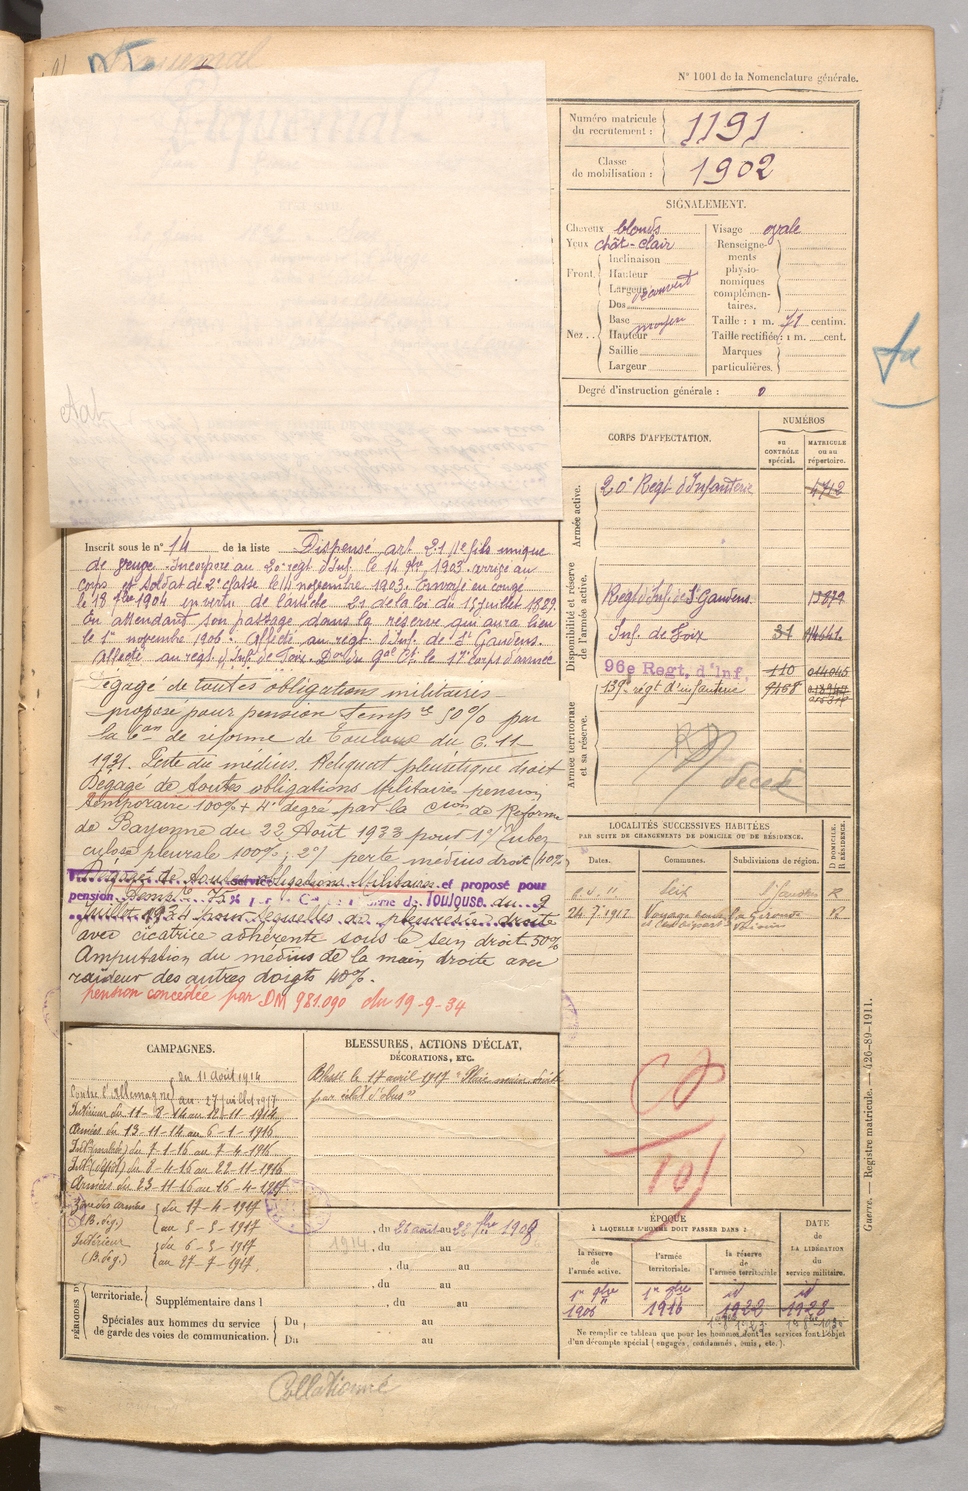 N° 1001 de la Nomenclature générale.
Numéro matricule du recrutement : 1191
Classe de mobilisation : 1902
SIGNALEMENT.
Cheveux blonds
Yeux chât-clair
Front
Inclinaison
Hauteur
Largeur découvert
Nez
Dos
Base moyen
Hauteur
Saillie
Largeur
Visage ovale
Renseignements physionomiques complémentaires.
Taille : 1 m. 71 centim.
Taille rectifiée : 1 m. cent.
Marques particulières.
Degré d'instruction générale : 0
CORPS D'AFFECTATION.
NUMÉROS
au CONTRÔLE spécial.
MATRICULE ou au répertoire.
Armée active.
20e Regt d'Infanterie 4712
Disponibilité et réserve de l'armée active.
Regt d'Inf. de St Gaudens
Inf. de Foix 31
96e Regt. d'Inf. 110
Armée territoriale et sa réserve.
139e regt d'infanterie 9468
décédé
Inscrit sous le n° 14 de la liste Dispensé art. 21 fils unique
de veuve. Incorporé au 20e regt d'Inf. le 14 9bre 1903. arrivé au
corps et soldat de 2e classe le 14 novembre 1903. Envoyé en congé
le 18 7bre 1904 en vertu de l'article 21 de la loi du 15 juillet 1889.
En attendant son passage dans la réserve qui aura lieu
le 1er novembre 1906. Affecté au regt d'Inf. de St Gaudens.
Affecté au regt d'Inf. de Foix. le 17e corps d'armée
Dégagé de toutes obligations militaires
proposé pour pension Tempre 50% par
la Con de réforme de Toulouse du 6.11
1931. Perte du médius. Reliquat pleurétique droit
Dégagé de toutes obligations Militaires pension
temporaire 100% + 4e degré par la Cion de Réforme
de Bayonne du 22 Août 1933 pour 1°/ tuber
culose pleurale 100% ; 2°/ perte médius droit 40%
Dégagé de toutes obligations Militaires et proposé pour
pension 75% Toulouse du 9
Juillet 1934 pour séquelles de pleurésie droite
avec cicatrice adhérente sous le sein droit 50%
Amputation du médius de la main droite avec
raideur des autres doigts 40%.
pension concédée par DM 981.090 du 19-9-34
LOCALITÉS SUCCESSIVES HABITÉES
PAR SUITE DE CHANGEMENTS DE DOMICILE OU DE RÉSIDENCE.
Dates.
Communes.
Subdivisions de région.
D DOMICILE. R RÉSIDENCE.
Seix St Gaudens R
24.7.1912 Voyage R
CAMPAGNES.
Contre l'Allemagne du 11 août 1914
au 27 juillet 1917
Intérieur du 11-8-14 au 12-11-1914
Armées du 13-11-14 au 6-1-1916
Intr (malade) du 7-1-16 au 7-4-1916
Intr (dépôt) du 8-4-16 au 22-11-1916
Armées du 23-11-16 au 16-4-1917
Zone des armées (B. deg.) du 17-4-1917
au 5-5-1917
Intérieur (B. deg.) du 6-5-1917
au 27-7-1917
BLESSURES, ACTIONS D'ÉCLAT, DÉCORATIONS, ETC.
Blessé le 17 avril 1917 "Plaie main droite
par éclat d'obus"
, du 26 août au 22 7bre 1908
1914 , du au
, du au
, du au
PÉRIODES D
territoriale. Supplémentaire dans l , du au
Spéciales aux hommes du service de garde des voies de communication.
Du au
Du au
ÉPOQUE
À LAQUELLE L'HOMME DOIT PASSER DANS :
la réserve de l'armée active.
l'armée territoriale.
la réserve de l'armée territoriale
DATE DE LA LIBÉRATION du service militaire.
1er 9bre 1906
1er 9bre 1916
id 1922
id 1928
Ne remplir ce tableau que pour les hommes dont les services font l'objet
d'un décompte spécial (engagés, condamnés, omis, etc.).
Guerre. — Registre matricule. — 426-89-1911.
Collationné